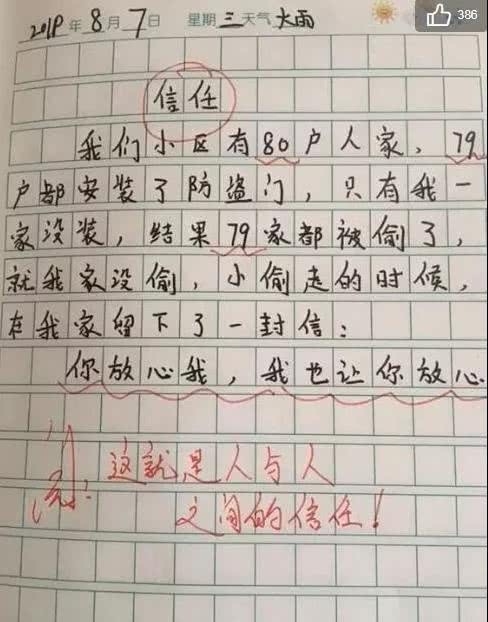 386
2019年8月7日 星期三 天气 大雨
信任
我们小区有80户人家，79
户都安装了防盗门，只有我一
家没装，结果79家都被偷了，
就我家没偷，小偷走的时候，
在我家留下了一封信：
你放心我，我也让你放心
这就是人与人
之间的信任！